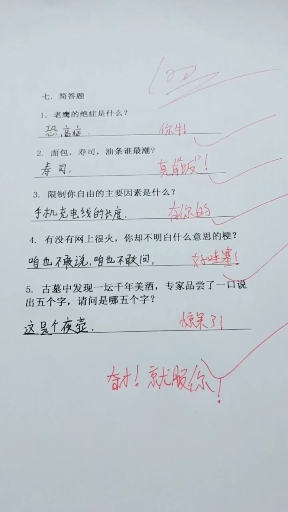 100
七. 简答题
1. 老鹰的绝症是什么?
恐高症. 你牛!
2. 面包,寿司,油条谁最潮?
寿司. 真有饭"!
3. 限制你自由的主要因素是什么?
手机充电线的长度. 有你的
4. 有没有网上很火,你却不明白什么意思的梗?
咱也不敢说,咱也不敢问. 好哇塞!
5. 古墓中发现一坛千年美酒,专家品尝了一口说
出五个字,请问是哪五个字?
这是个夜壶. 惊呆了!
奋才!就服你!